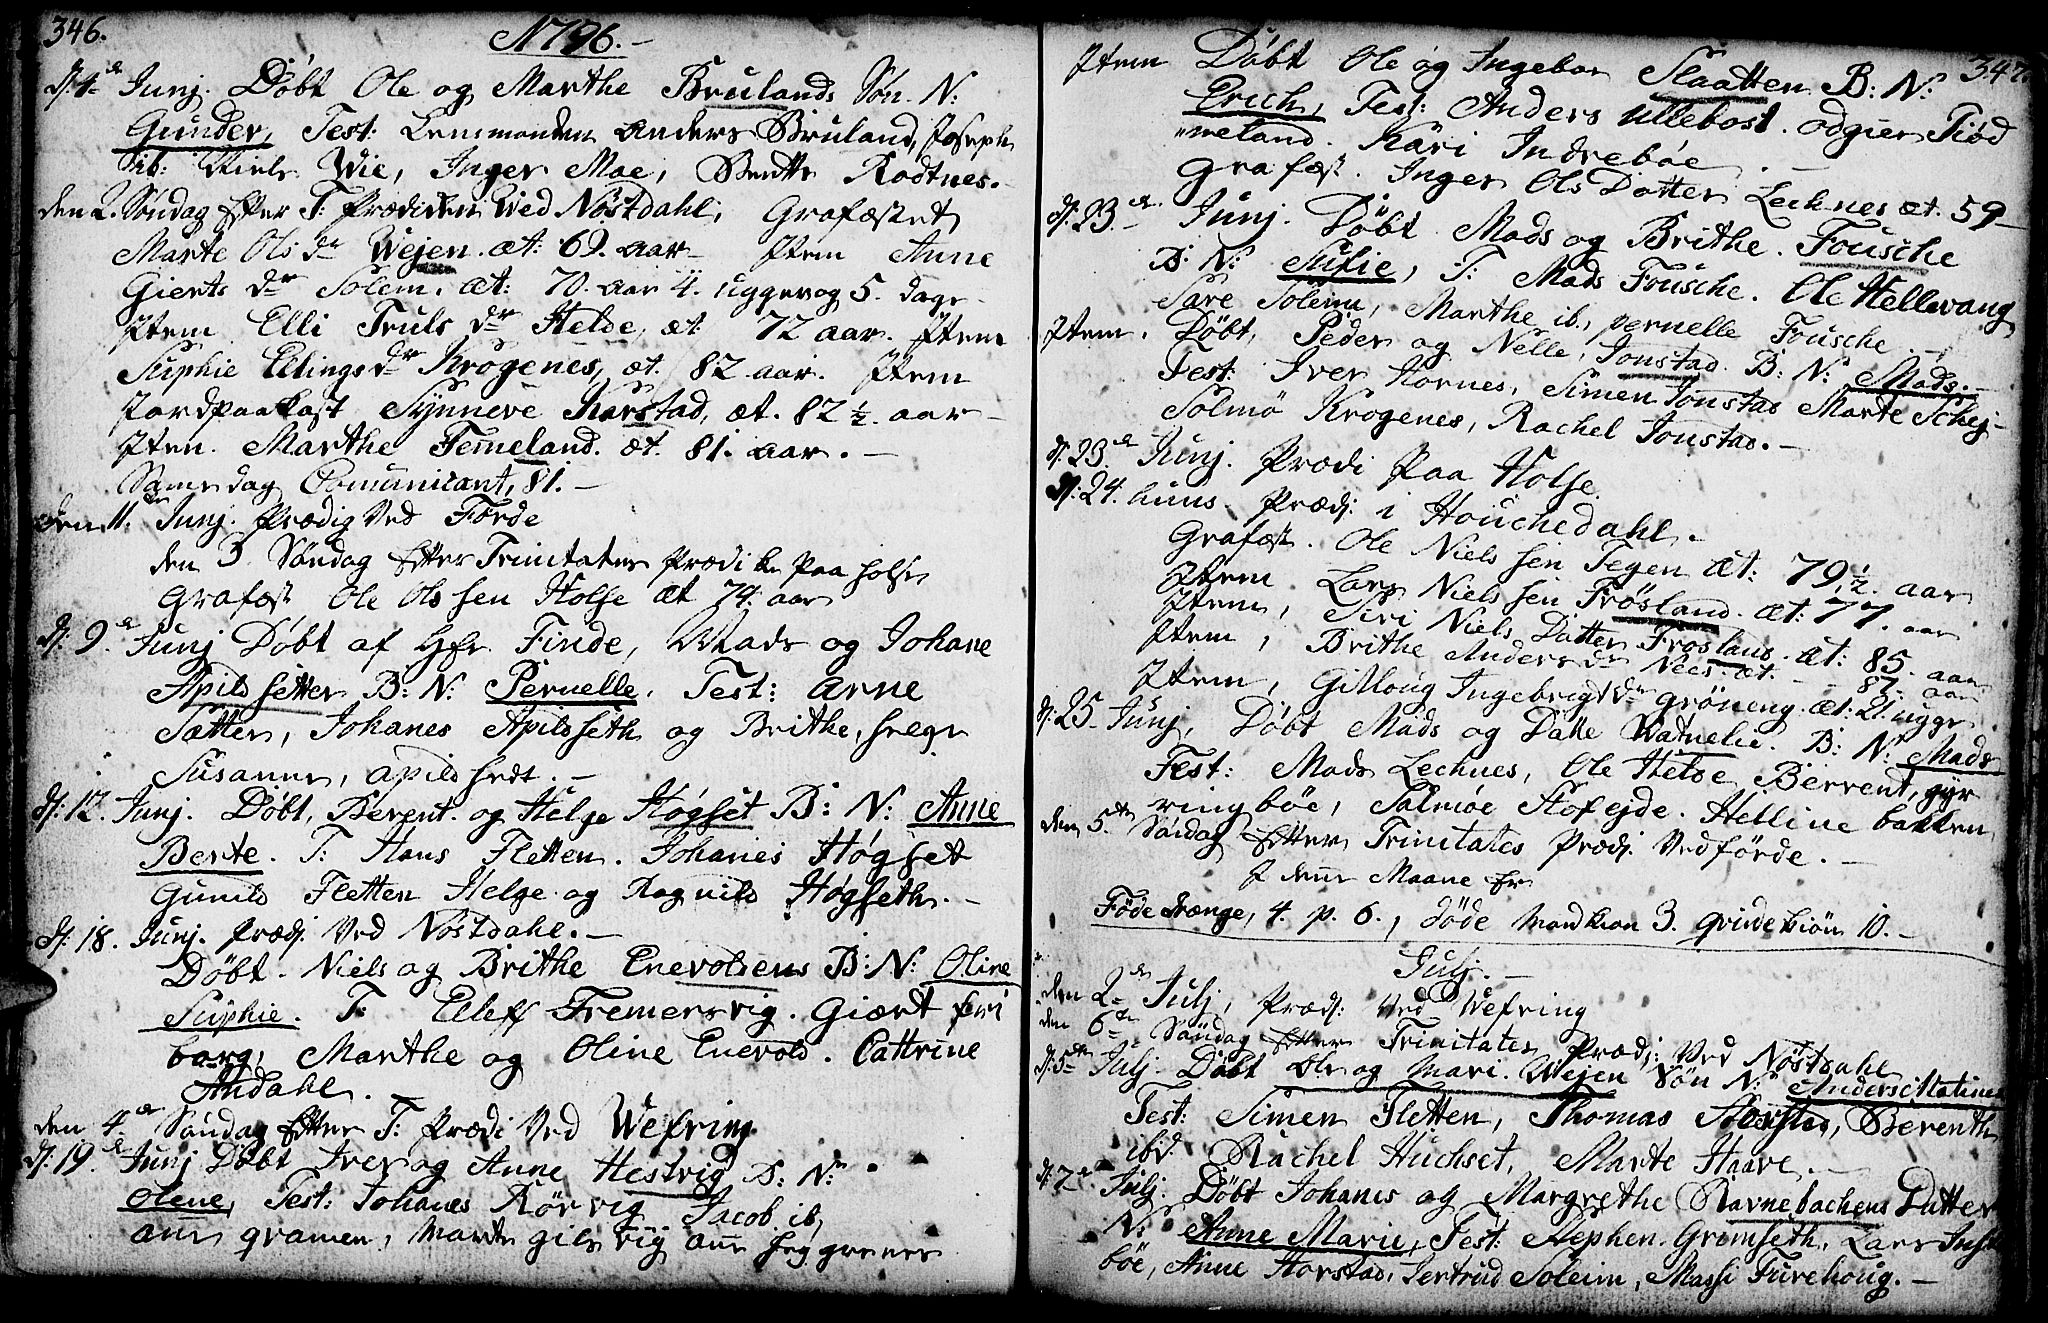 346.
A 1796.
d. 4de Junj. Döbt Ole og Marthe Brulands Søn. N:
Gunder, Test: Lensmanden Anders Bruland, Joseph
ib: Niels Wie, Inger Moe, Benthe Rodtnes.
den 2. Søndag Efter T: Prædiken Wed Nöstdahl, Grafæstet
Marte Ols dr Wejen. æt: 69. aar Item Anne
Gierts dr Solem. æt: 70. aar 4. ugger og 5. dage
Item Elli Truls dr Helde, æt 72 aar. Item
Suphie Ellings dr Krogenes, æt. 82 aar. Item
Jordpaakast Synneve Karstad, æt. 82 1/2. aar
Item. Marthe Femeland. æt. 81. aar.
Samedag Comunicant, 81.
den 11. Junj. Prædig Ved Förde
den 3 Söndag Efter Trinitates Prædiken Paa Holsen
Grafæst Ole Ols sen Holse æt 74. aar
d. 9de Junj Döbt af Hr. Finde, Mads og Johane
Apildsetter B: N: Pernelle, Test: Arne
Sætter, Johanes Apildseth og Brithe, Helge
Susanne, apildsedt.
d. 12. Junj. Döbt, Berent. og Helge Högset B: N: Anne
Bente. T: Hans Fletten. Johanes Högset
Gunild Fletten Helge og Ragnild Högseth.
d. 18. Junj. Prædj. Ved Nöstdahl.
Döbt. Niels og Brithe Enevoldsens B: N: Oline
Suphie. T: Elleff Fremersvig. Giært
barg, Marthe og Oline Enevold. Cattrine
Andahl.
den 4de Söndag Efter T: Prædi Ved Wefring
d. 19de Junj Döbt Iver og Anne Hestvig B: N:
Olene, Test: Johanes Rörvig Jacob ib,
ann qvamen, Marte gilsvig ann
347.
Item Döbt Ole og Ingebor Slaatten B: N:
Erich, Test: Anders Ullebost. odgier Tiöd
meland. Kari Indreböe.
Grafæst. Inger Ols Datter Lechnes æt. 59
d. 23de Junj. Döbt Mads og Brithe. Fousche
B: N: Sufie, T: Mads Fousche. Ole Hellevang
Sare Soleim, Marthe ib., pernelle Fousche
Item. Döbt, Peder og Nelle, Jonstad. B: N: Mads.
Test: Iver Hornes, Simen Jonstad Marte Schej
Solmö Krogenes, Rachel Jonstad.
d. 23de Junj. Prædi Paa Holse
d. 24. huus Prædj: i Houchedahl.
Grafæst. Ole Niels sen Tegen æt: 79 1/2 aar
Item Lars Niels sen Frösland. æt: 77. aar
Item, Siri Niels Datter Frösland. æt: 85. aar
Item, Brithe Anders dr Nees. æt. 87. aar
Item, Gilloug Ingebrigt dr gröneng. æt: 21. ugger
d. 25 Junj, Döbt Mads og Datte Watnelie. B: N: Mads
Test: Mads Lechnes, Ole Helge Berrent, gyr
ringböe, Salmöe Hofejde. Helline bakken
den 5te Söndag Efter Trinitates Prædj. Ved förde.
I denne Maane Er
Föde drænge, 4. p. 6., döde Mandkiön 3. qvindekiön 10.
Julj.
den 2de Julj, Præd: Ved Wefring
den 6te Söndag Efter Trinitates Prædj: Ved Nöstdahl
d. 5te Julj. Döbt Ole og Mari. Wejen Sön N: Anders Matinus
Test: Simen Fletten, Thomas Horstad, Berenth
ibd. Rachel Huchset, Marte Haave.
d. 7de Julj. Döbt Johanes og Margrethe Ravnebachens Datter
N: Anne Marie, Test: Stephen Gromseth, Lars
böe, Anne Horstad, Jertrud Soleim, Massi Furehoug.